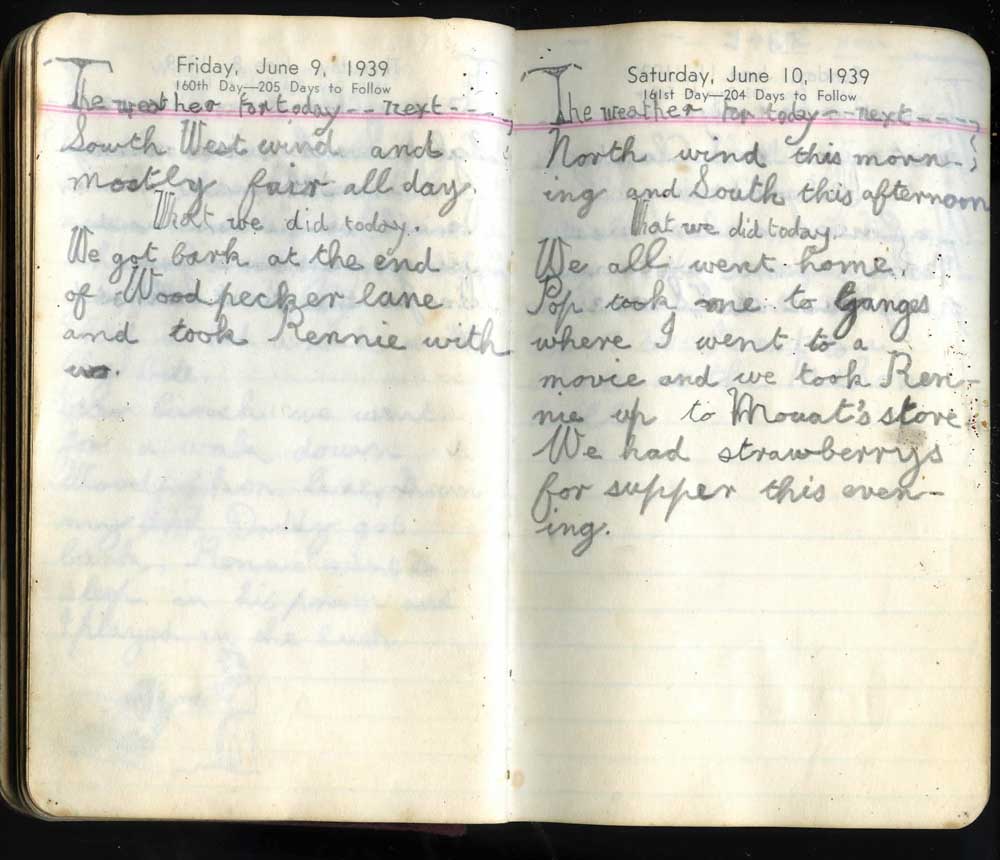 Friday, June 9, 1939
160th Day—205 Days to Follow
The weather for today -- next --
South West wind and
mostly fair all day.
What we did today.
We got bark at the end
of Woodpecker lane
and took Rennie with
us.
Saturday, June 10, 1939
161st Day—204 Days to Follow
The weather for today -- next ----,
North wind this morn-
ing and South this afternoon
What we did today.
We all went home.
Pop took me to Ganges
where I went to a
movie and we took Ren-
nie up to Mouat's store
We had strawberrys
for supper this even-
ing.